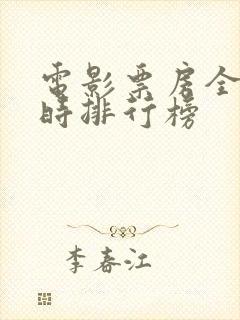 電影票房全
時排行榜
李春江